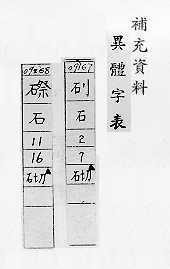 補充資料
異體字表
0767
石刂
石
2
7
砌
0968
磜
石
11
16
砌